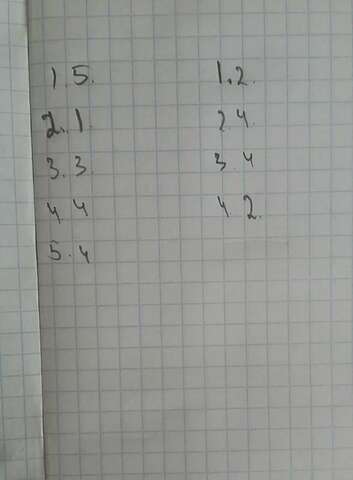 1.5. 1.2.
2.1. 2 4.
3.3 3 4
4 4 4 2.
5.4